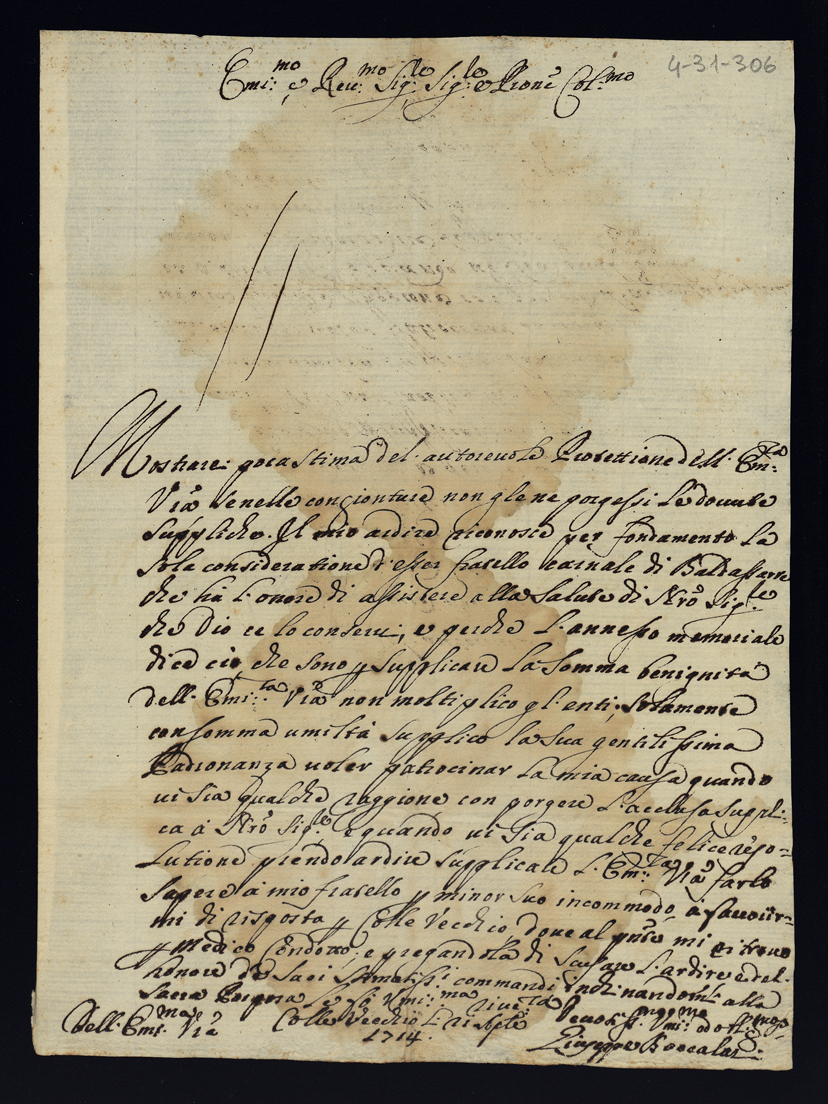 4-31-306
Emi:mo e Reu:mo Sig:re Sig:re e Prone Col:mo
Mostrarei poca stima del' autoreuole Protettione dell' Em:za
Vra se nelle congionture non gle ne porgessi le douute
suppliche. Il mio ardire riconosce per fondamento la
sola consideratione d'esser fratello carnale di Baldassarre
che ha l'onore di assistere alla salute di Nro Sig:re
che Dio ce lo conserui, e perche l'annesso memoriale
dice ciò che sono p supplicare la somma benignità
dell' Emi:za Vra non moltiplico gl'enti, solamente
con somma umiltà supplico la sua gentilissima
Padronanza uoler patrocinar la mia causa quando
ui sia qualche raggione con porgere l'acclusa suppli=
ca à Nro Sig:re e quando ui sia qualche felice reso=
lutione prendo ardire supplicare l'Em:za Vra farlo
sapere à mio fratello p minor suo incommodo, ò fauorir=
mi di risposta p Colle Vecchio doue al pnte mi ritrouo
p Medico Condotto; e pregandola di scusare l'ardire e del
honore de suoi stimatissi: commandi inclinandomi alla
Sacra Porpora le fò Umi:ma riue:za
Dell' Emi:za Vra Colle Vecchio li 21 Sptre 1714.
Deuotis:mo Umi:mo et Obb:mo
Giuseppe Boccalari